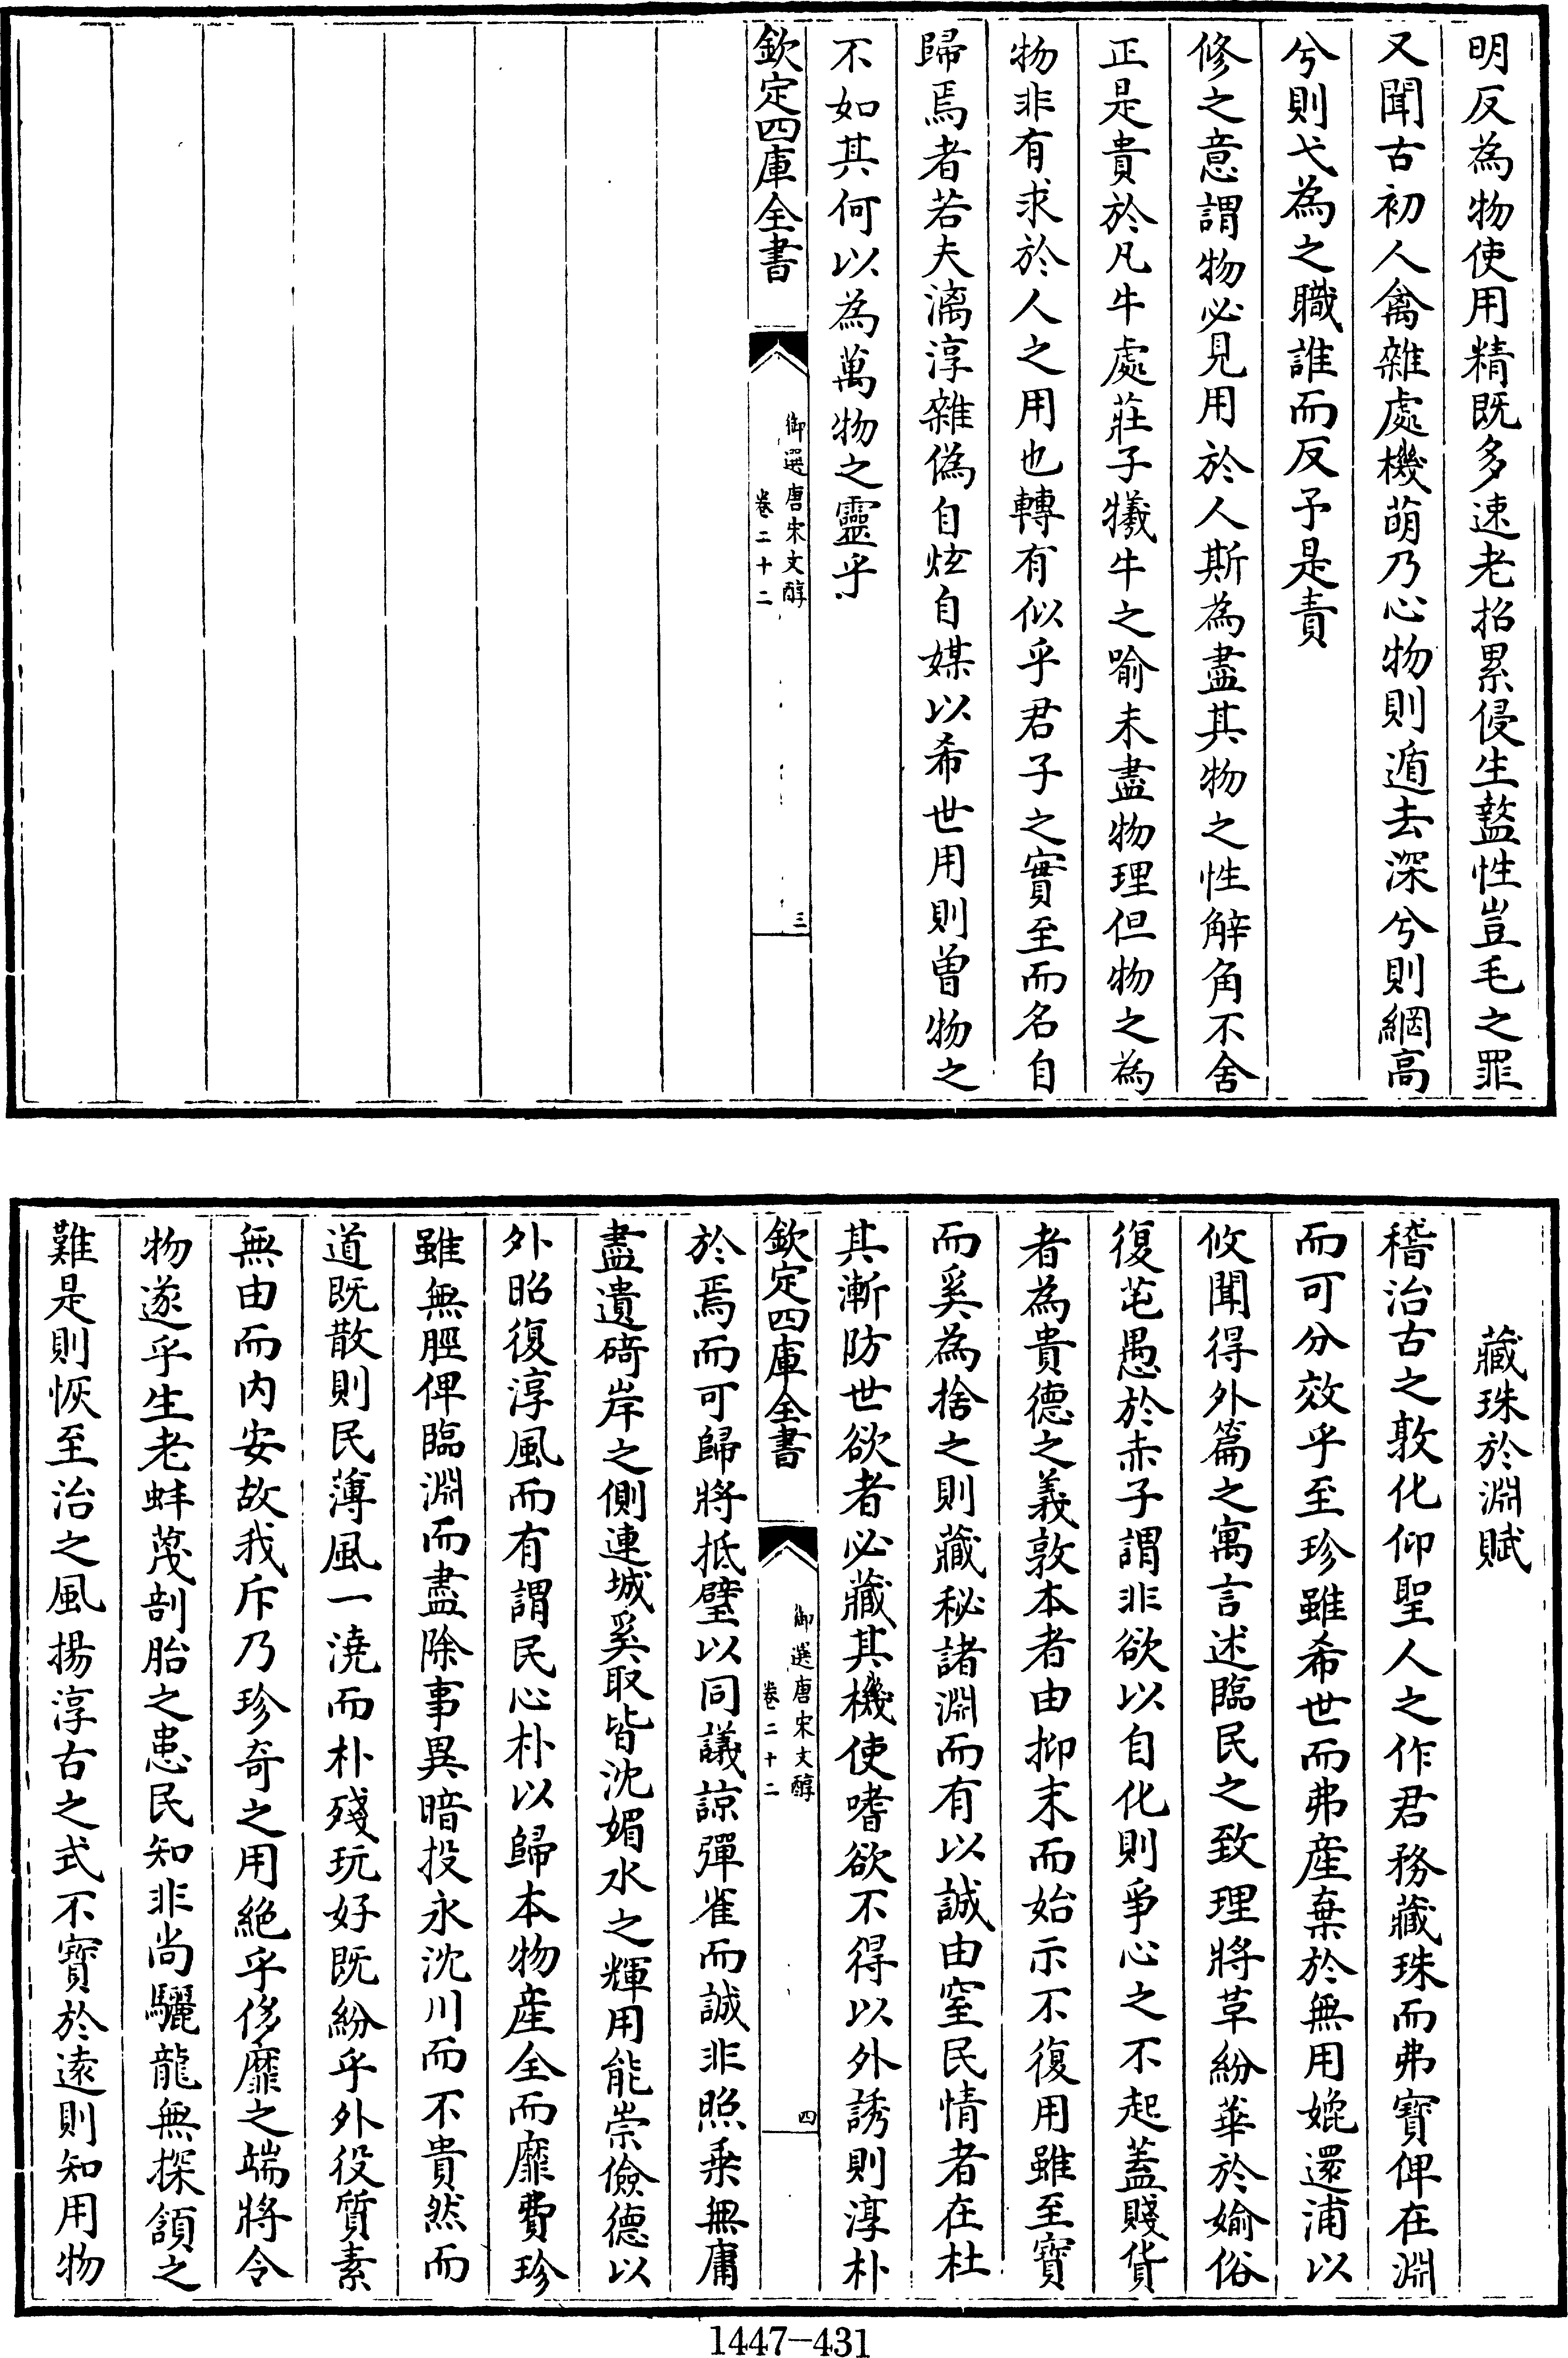 明反為物使用精既多速老招累侵生盭性豈毛之罪
又聞古初人禽雜處機萌乃心物則遁去深兮則網高
兮則弋為之職誰而反予是責
修之意謂物必見用於人斯為盡其物之性觧角不舍
正是貴於凡牛處莊子犧牛之喻未盡物理但物之為
物非有求於人之用也轉有似乎君子之實至而名自
歸焉者若夫漓淳雜偽自炫自媒以希世用則曽物之
不如其何以為萬物之靈乎
欽定四庫全書
御選唐宋文醇
卷二十二
三
藏珠於淵賦
稽治古之敦化仰聖人之作君務藏珠而弗寶俾在淵
而可分效乎至珍雖希世而弗産棄於無用媲還浦以
攸聞得外篇之寓言述臨民之致理將革紛華於婾俗
復芚愚於赤子謂非欲以自化則爭心之不起蓋賤貨
者為貴德之義敦本者由抑末而始示不復用雖至寳
而奚為捨之則藏秘諸淵而有以誠由窒民情者在杜
其漸防世欲者必藏其機使嗜欲不得以外誘則淳朴
欽定四庫全書
御選唐宋文醇
卷二十二
四
於焉而可歸將抵璧以同議諒彈雀而誠非照乗無庸
盡遺碕岸之側連城奚取皆沈媚水之輝用能崇儉德以
外昭復淳風而有謂民心朴以歸本物産全而靡費珍
雖無脛俾臨淵而盡除事異暗投永沈川而不貴然而
道既散則民薄風一澆而朴殘玩好既紛乎外役質素
無由而内安故我斥乃珍奇之用絶乎侈靡之端將令
物遂乎生老蚌蔑剖胎之患民知非尚驪龍無探頷之
難是則恢至治之風揚淳古之式不寳於逺則知用物
1447-431